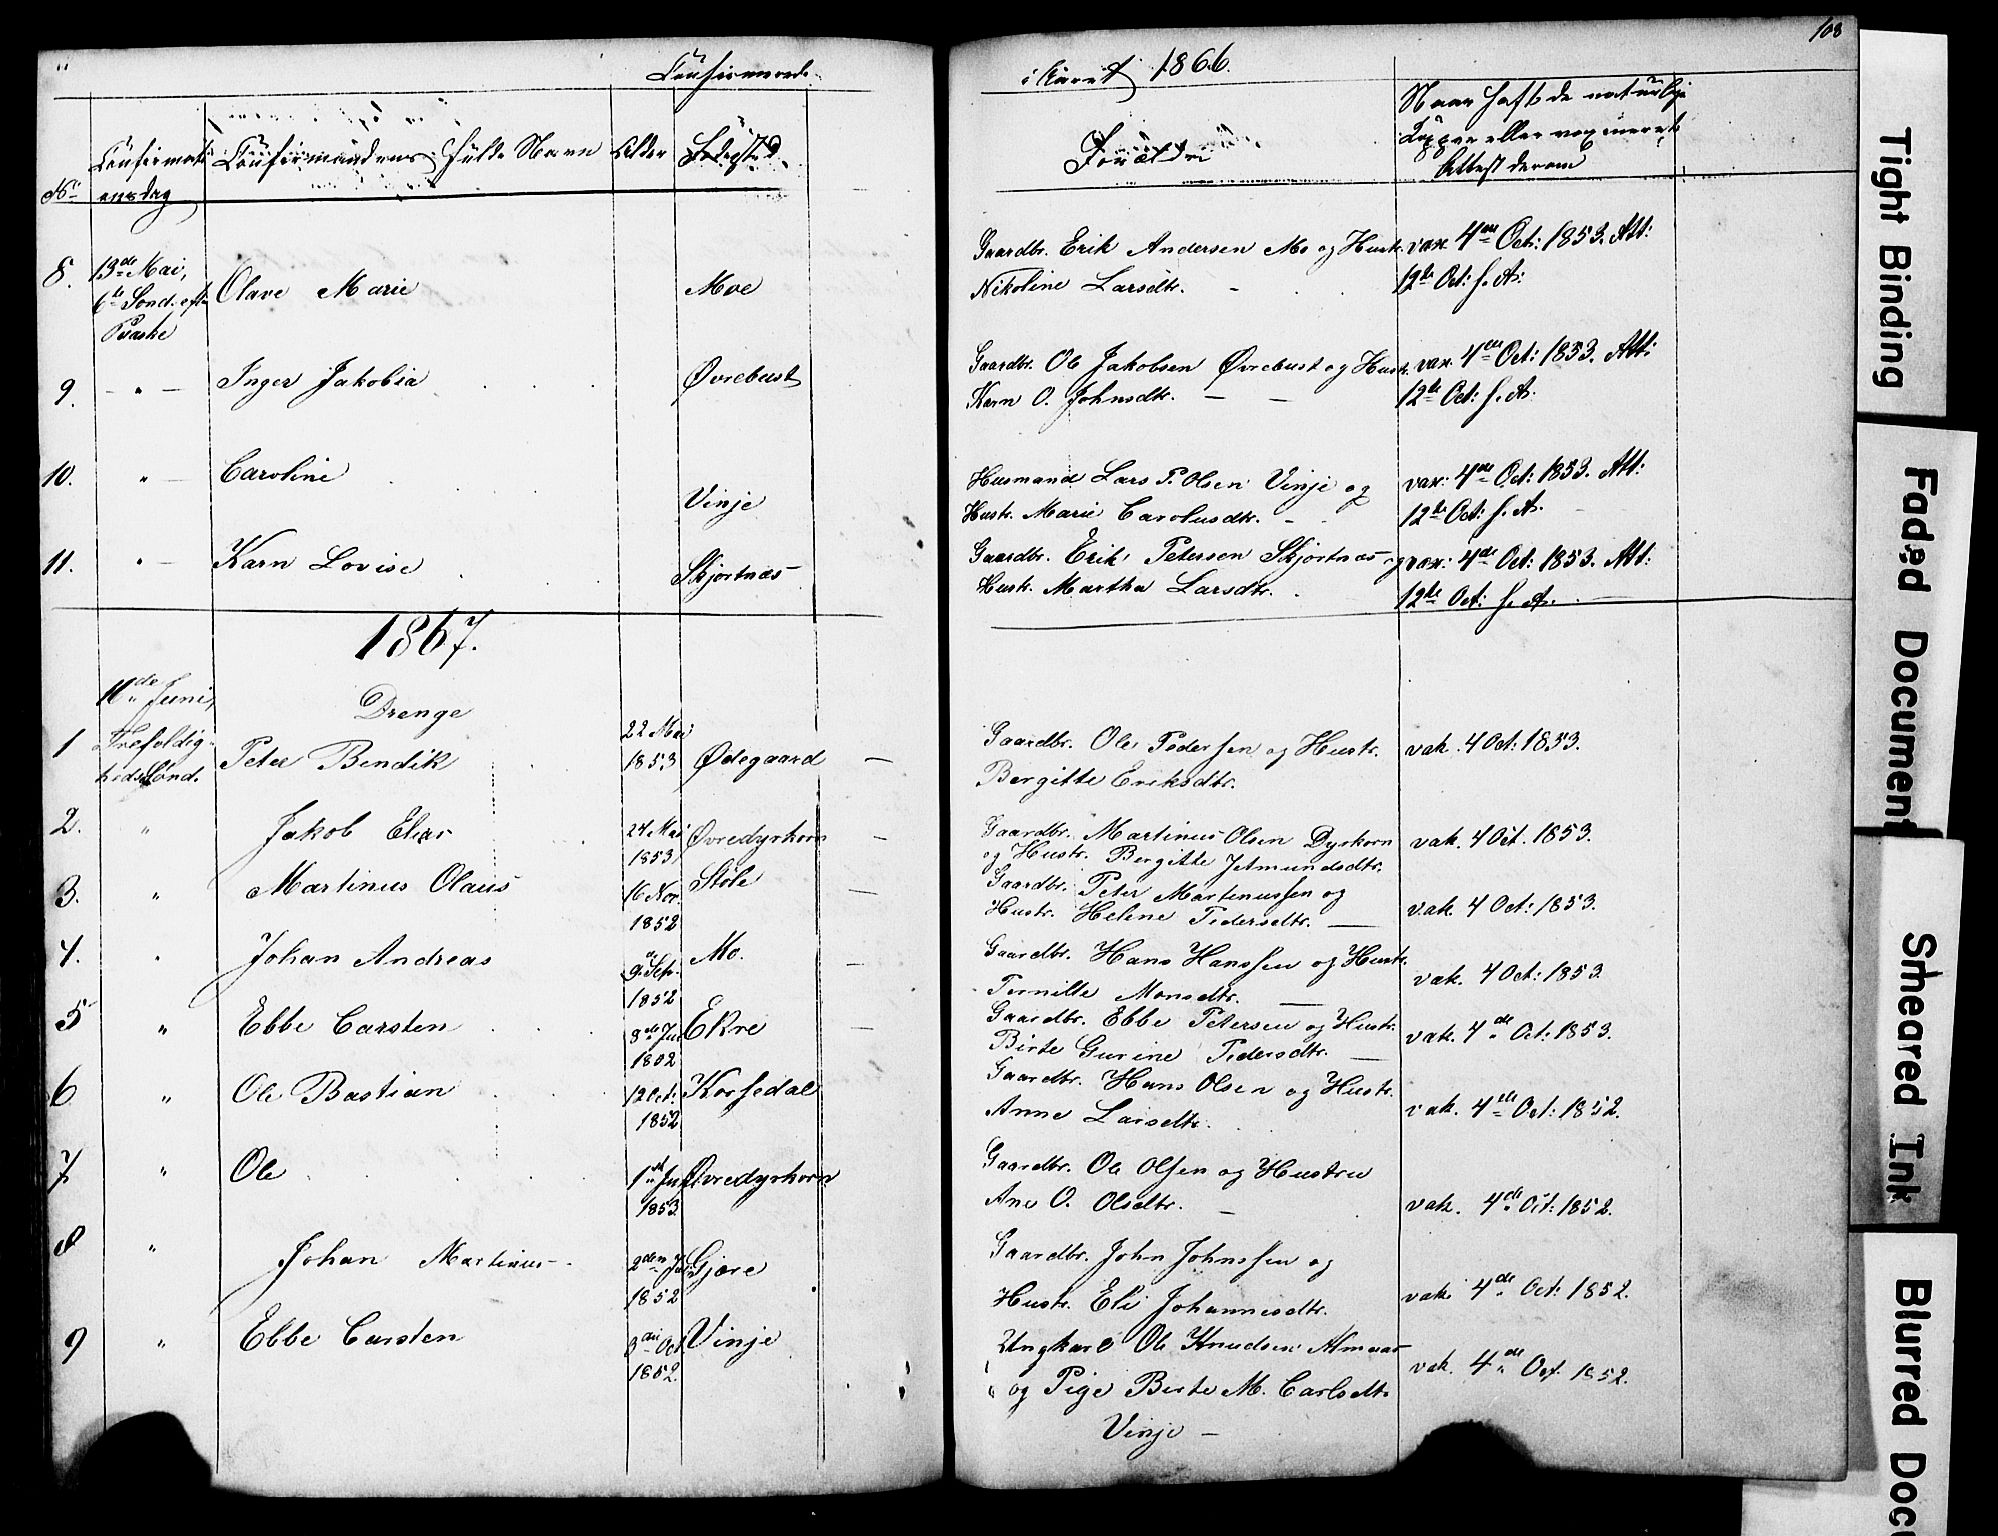 Confirmerede i Aaret 1866.
108
No
Confirmationsdag
Confirmandens fulde Navn
Alder
Fødested
Forældre
Naar havt de naturlige
Kopper eller vaxineret
Attest derom
8. 13de Mai, Olave Marie Moe Gaardbr. Erik Andersen Mo og Hustr. vax. 4de Oct: 1853. Att:
6te Sønd. eft. Nikoline Larsdtr. - 12te Oct: s. A.
Paaske
9. - " - Inger Jakobia Øvrebust Gaardbr. Ole Jakobsen Øvrebust og Hustr. vax. 4de Oct: 1853. Att:
Karn O. Johnsdtr. - - 12te Oct: s. A.
10. " - Caroline Vinje Husmand Lars P. Olsen Vinje og vax: 4de Oct: 1853. Att:
Hustr. Marie Carolusdtr. - 12te Oct: s. A.
11. " - Karn Lovise Skjortnæs Gaardbr. Erik Petersen Skjortnæs og vax: 4de Oct: 1853. Att:
Hustr. Martha Larsdtr. 12te Oct: s. A.
1867.
Juni,
Drenge
1 Trefoldig- Peter Bendik 22 Mai Ødegaard - Gaardbr. Ole Pedersen og Hustr. vak. 4 Oct: 1853.
heds Sønd. 1853 Bergitte Eriksdtr.
2. " Jakob Elias 24 Mai Øvredyrkorn - Gaardbr. Martinus Olsen Dyrkorn vak. 4 Oct. 1853.
1853 og Hustr. Bergitte Jetmundsdtr.
3. " Martinus Olaus 16 Nov. Støle - Gaardbr. Peter Martinussen og vak. 4 Oct: 1853.
1852 Hustr. Helene Pedersdtr. -
4. " Johan Andreas 9 Sept. Mo. - Gaardbr. Hans Hanssen og Hustr. vak. 4 Oct: 1853.
1852 Pernille Monsdtr. -
5 " Ebbe Carsten 8de Ekre - Gaardbr. Ebbe Petersen og Hustr. vak. 4de Oct: 1853.
Birte Gurine Pedersdtr. -
6 " Ole Bastian 12 Oct: Korsedal Gaardbr. Hans Olsen og Hustr. vak. 4de Oct: 1852.
1852 Anne Larsdtr.
7 " Ole 1st Øvredyrkorn Gaardbr. Ole Olsen og Hustru
1853 Ane O. Olsdtr. - vak. 4de Oct: 1852.
8 " Johan Martinus 2den Gjære Gaardbr. John Johnssen og
1852 Hustr. Eli Johannesdtr. vak. 4de Oct: 1852.
9 " Ebbe Carsten 3die Oct Vinje Ungkarl Ole Knudsen Almaas
1852. og Pige Birte M. Carlsdtr. vak. 4de Oct. 1852.
Vinje -
Tight Binding
Faded Document
Smeared Ink
Blurred Doc